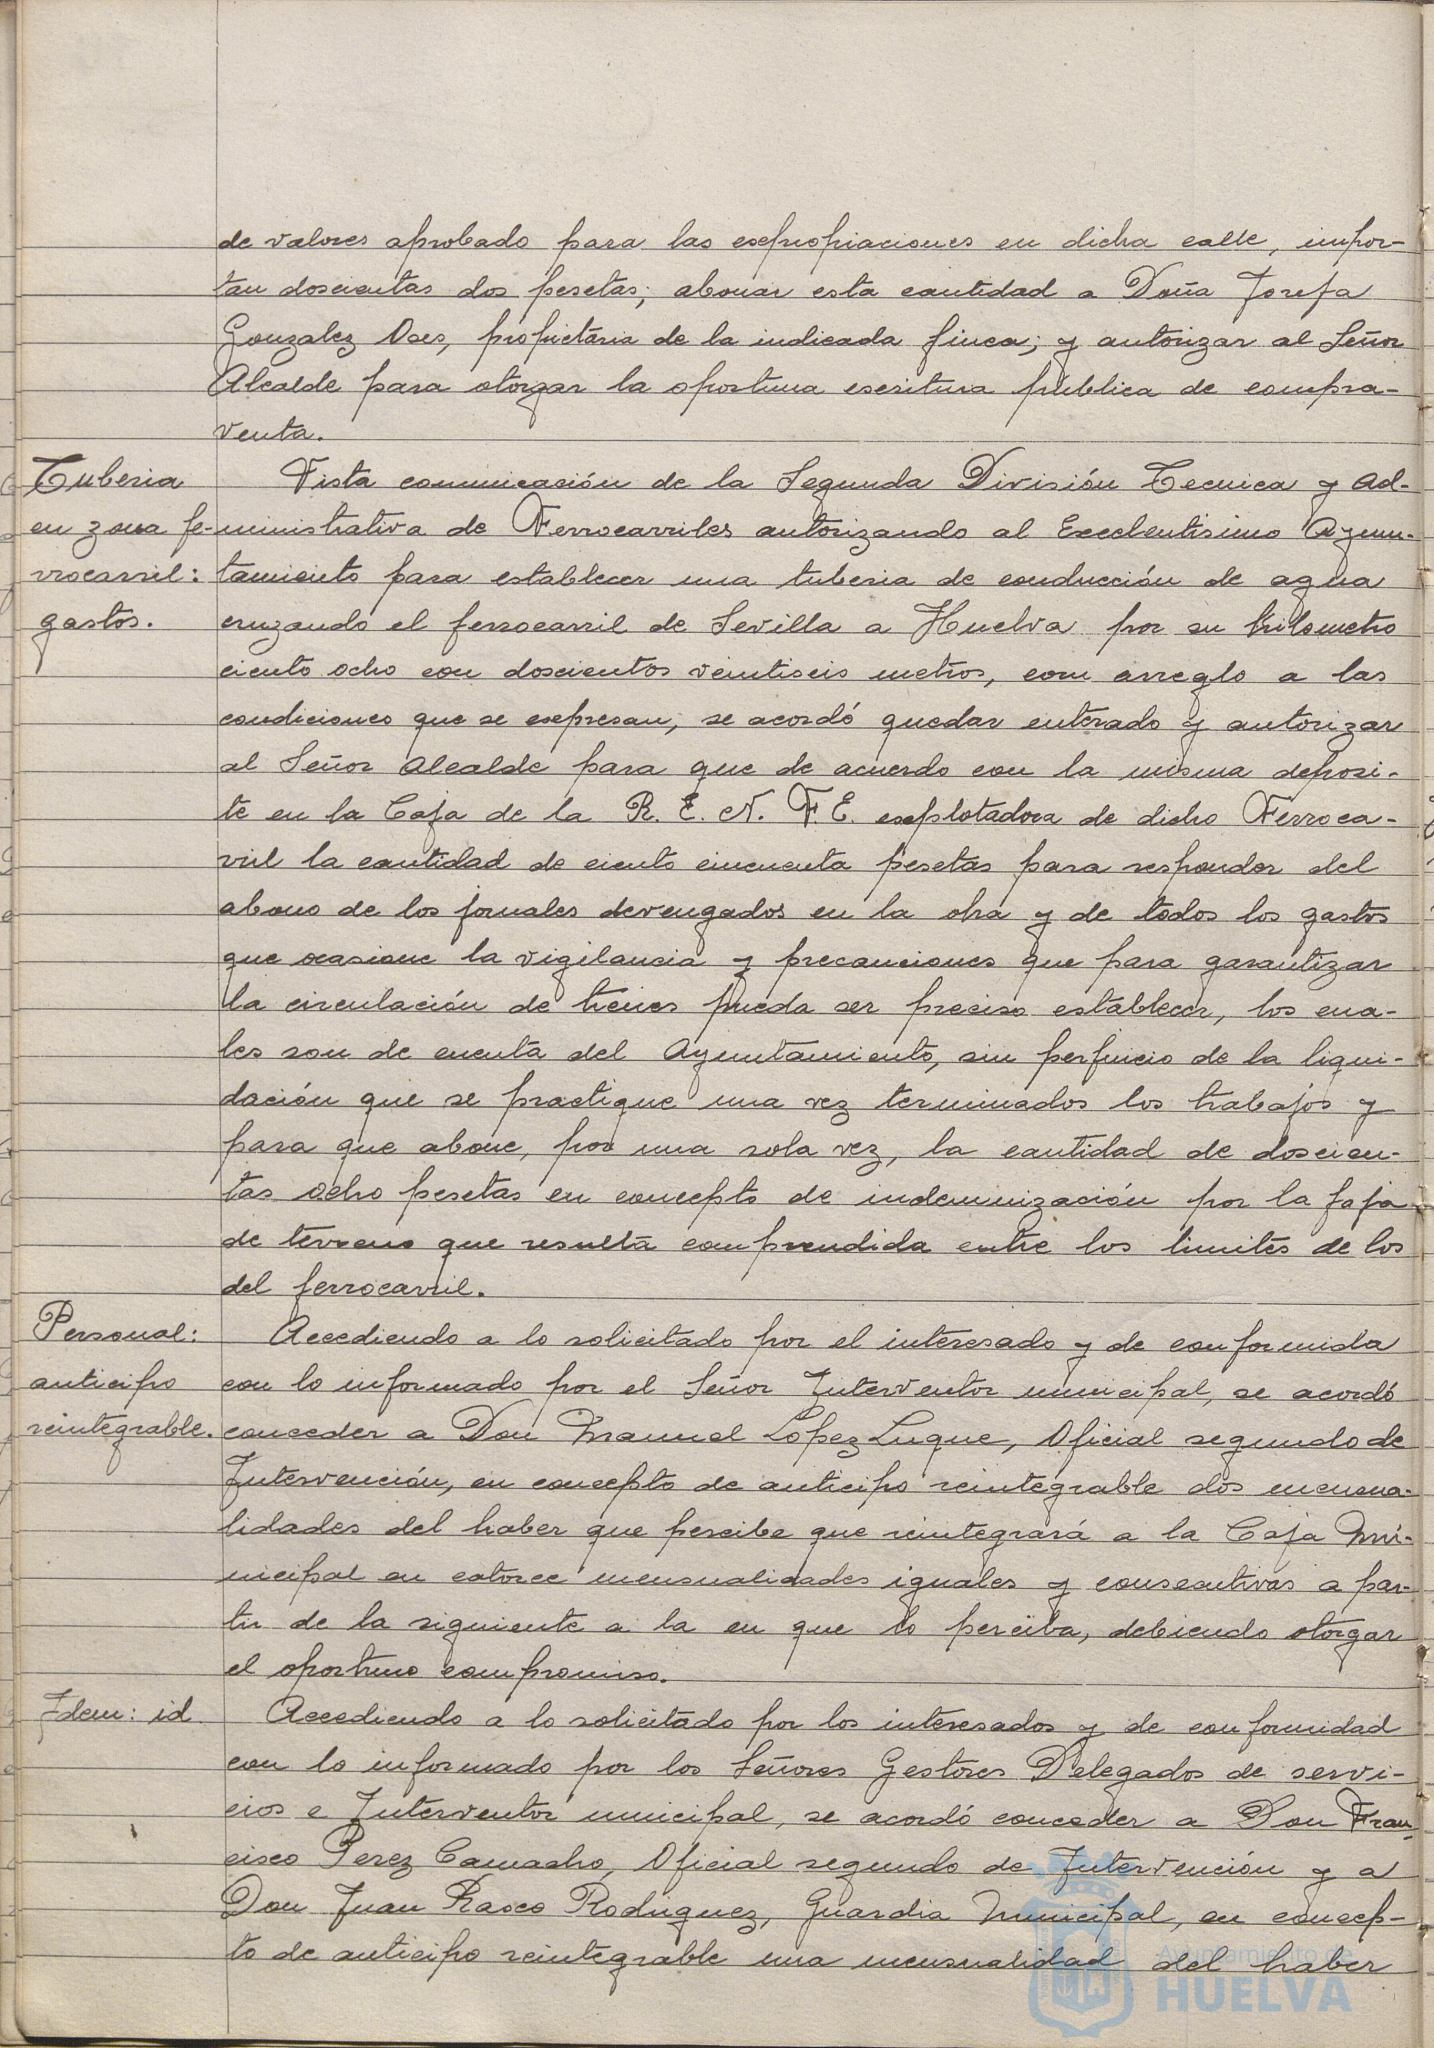 de valores aprobado para las expropiaciones en dicha calle, impor-
tan doscientas dos pesetas; abonar esta cantidad a Doña Josefa
Gonzalez, propietaria de la indicada finca; y autorizar al Señor
Alcalde para otorgar la oportuna escritura publica de compra-
venta.
Tuberia
en zona fe-
rrocarril:
gastos.
Vista comunicación de la Segunda División Tecnica y Ad-
ministrativa de Ferrocarriles autorizando al Excelentisimo Ayun-
tamiento para establecer una tuberia de conducción de agua
cruzando el ferrocarril de Sevilla a Huelva por su kilometro
ciento ocho con doscientos veintiseis metros, con arreglo a las
condiciones que se expresan; se acordó quedar enterado y autorizar
al Señor Alcalde para que de acuerdo con la misma deposi-
te en la Caja de la R. E. N. F. E. explotadora de dicho Ferroca-
rril la cantidad de ciento cincuenta pesetas para responder del
abono de los jornales devengados en la obra y de todos los gastos
que ocasione la vigilancia y precauciones que para garantizar
la circulación de trenes pueda ser preciso establecer, los cua-
les son de cuenta del Ayuntamiento, sin perjuicio de la liqui-
dación que se practique una vez terminados los trabajos y
para que abone, por una sola vez, la cantidad de doscien-
tas ocho pesetas en concepto de indemnización por la faja
de terreno que resulta comprendida entre los limites de los
del ferrocarril.
Personal:
anticipo
reintegrable.
Accediendo a lo solicitado por el interesado y de conformida
con lo informado por el Señor Interventor municipal, se acordó
conceder a Don Manuel López Luque, Oficial segundo de
Intervención, en concepto de anticipo reintegrable dos mensua-
lidades del haber que percibe que reintegrará a la Caja Mu-
nicipal en catorce mensualidades iguales y consecutivas a par-
tir de la siguiente a la en que lo perciba, debiendo otorgar
el oportuno compromiso.
Idem: id.
Accediendo a lo solicitado por los interesados y de conformidad
con lo informado por los Señores Gestores Delegados de servi-
cios e Interventor municipal, se acordó conceder a Don Fran-
cisco Perez Camacho, Oficial segundo de Intervención y a
Don Juan Rasco Rodriguez, Guardia Municipal, en concep-
to de anticipo reintegrable una mensualidad del haber
Ayuntamiento de
HUELVA